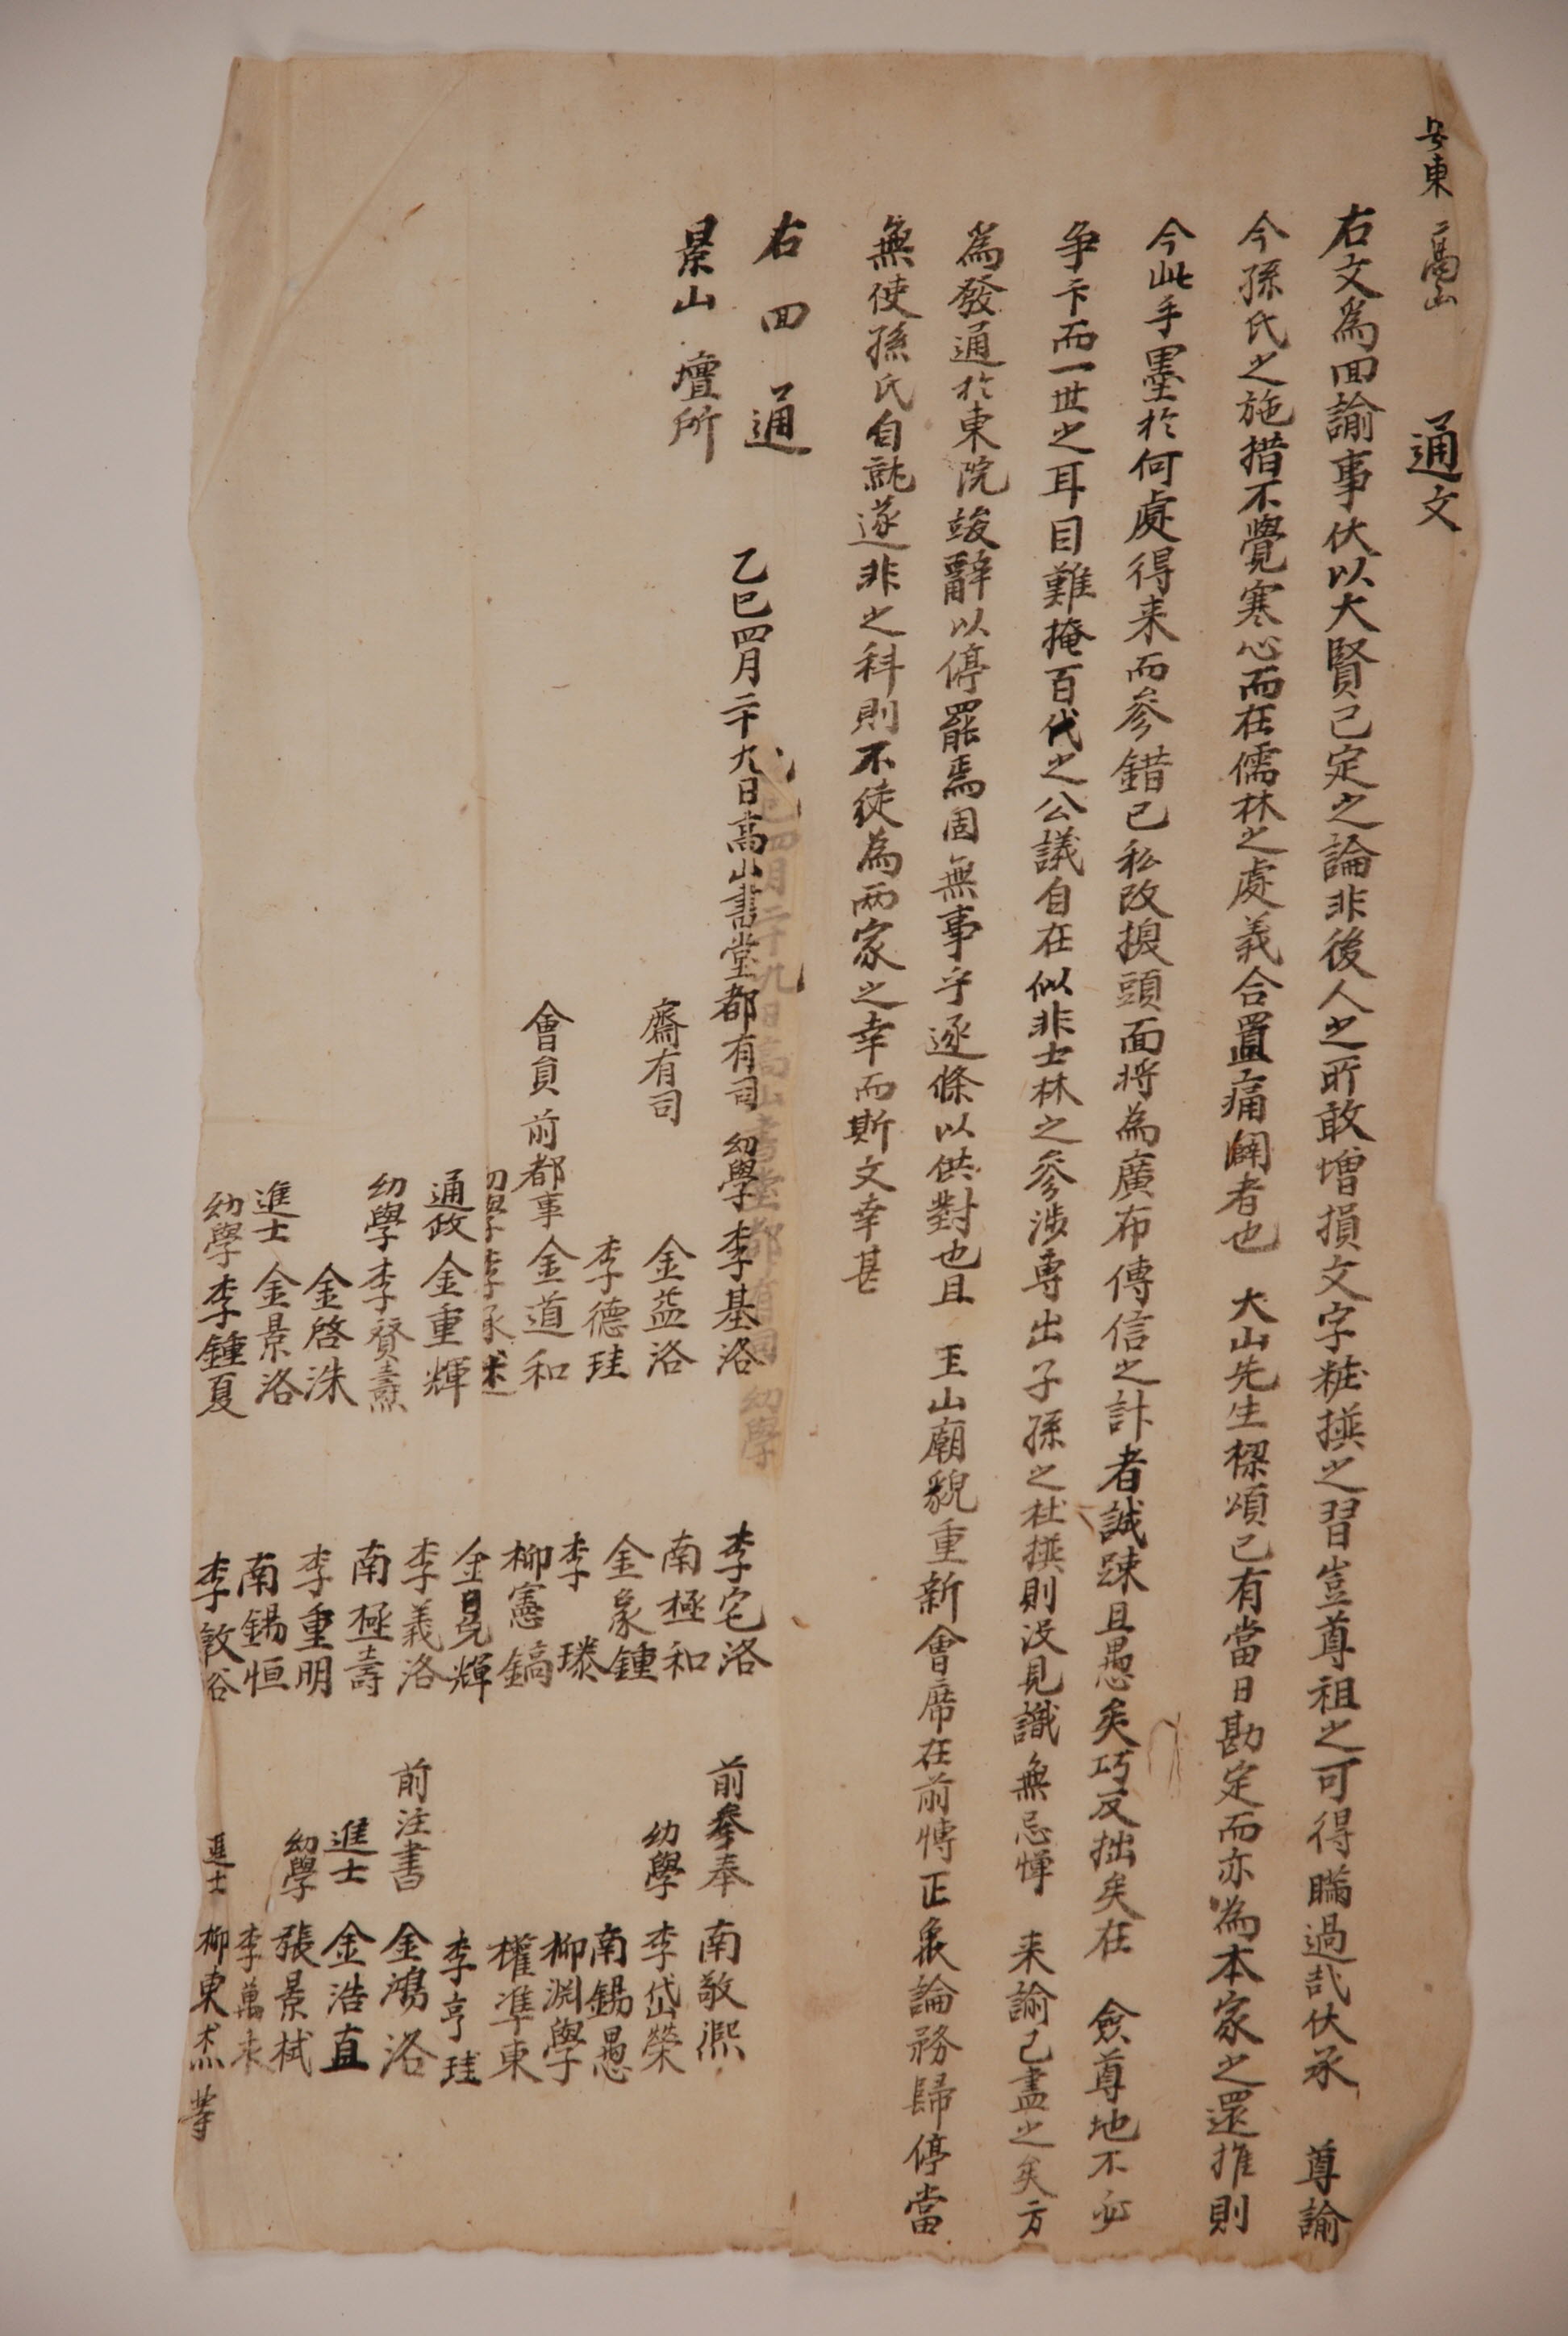 安東 高山 通文
右文爲回諭事伏以大賢已定之論非後人之所敢增損文字粧撰之習豈尊祖之可得瞞過哉伏承 尊諭
今孫氏之施措不覺寒心而在儒林之處義合置痛闢者也 大山先生樑頌已有當日勘定而亦為本家之還推則
今此手墨於何處得来而參錯已私改換頭面将為廣布傳信之計者誠踈且愚矣巧反拙矣在 僉尊地不必
争卞而一世之耳目難掩百代之公議自在似非士林之參涉專出子孫之杜撰則没見識無忌憚 来諭已盡之矣方
為發通於東院竢辭以停罷焉固無事乎逐條以供對也且 玉山廟貌重新會席在前博正衆論務歸停當
無使孫氏自就遂非之科則不徒為兩家之幸而斯文幸甚
右回通
景山 壇所
乙巳四月二十九日高山書堂都有司 幼學 李基洛
齋有司 金益洛
李德珪
會員 前都事 金道和
幼學 李承述
通政 金重輝
幼學 李賢燾
金啓洙
進士 金景洛
幼學 李鍾夏
李宅洛
南極和
金象鍾
李瑧
柳憲鎬
金冕輝
李義洛
南極壽
李重明
南錫恒
李敦谷
前參奉 南敬熙
幼學 李岱榮
南錫愚
柳淵學
權準東
李亨珪
前注書 金鴻洛
進士 金浩直
幼學 張景栻
李萬來
進士 柳東杰 等